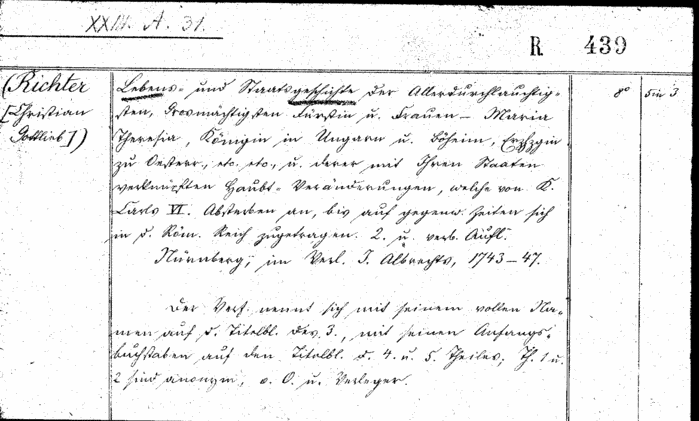 XXIII. A. 31.
R 439
(Richter
[Christian
Gottlieb])
Lebens- und Staatsgeschichte der Allerdurchlauchtig-
sten, Grosmächtigsten Fürstin u. Frauen – Maria
Theresia, Königin in Ungarn u. Böheim, Erzhzgin
zu Oesterr., etc. etc., u. derer mit Ihren Staaten
verknüpften Haubt-Veränderungen, welche von K.
Carls VI. Absterben an, bis auf gegenw. Zeiten sich
in d. Röm. Reich zugetragen. 2. u. verb. Aufl.
Nürnberg, im Verl. J. Albrechts, 1743–47.
8° 5 in 3
Der Verf. nennt sich mit seinem vollen Na-
men auf d. Titelbl. des 3., mit seinen Anfangs-
buchstaben auf den Titelbl. d. 4. u. 5. Theiles; Th. 1 u.
2 sind anonym, o. O. u. Verleger.